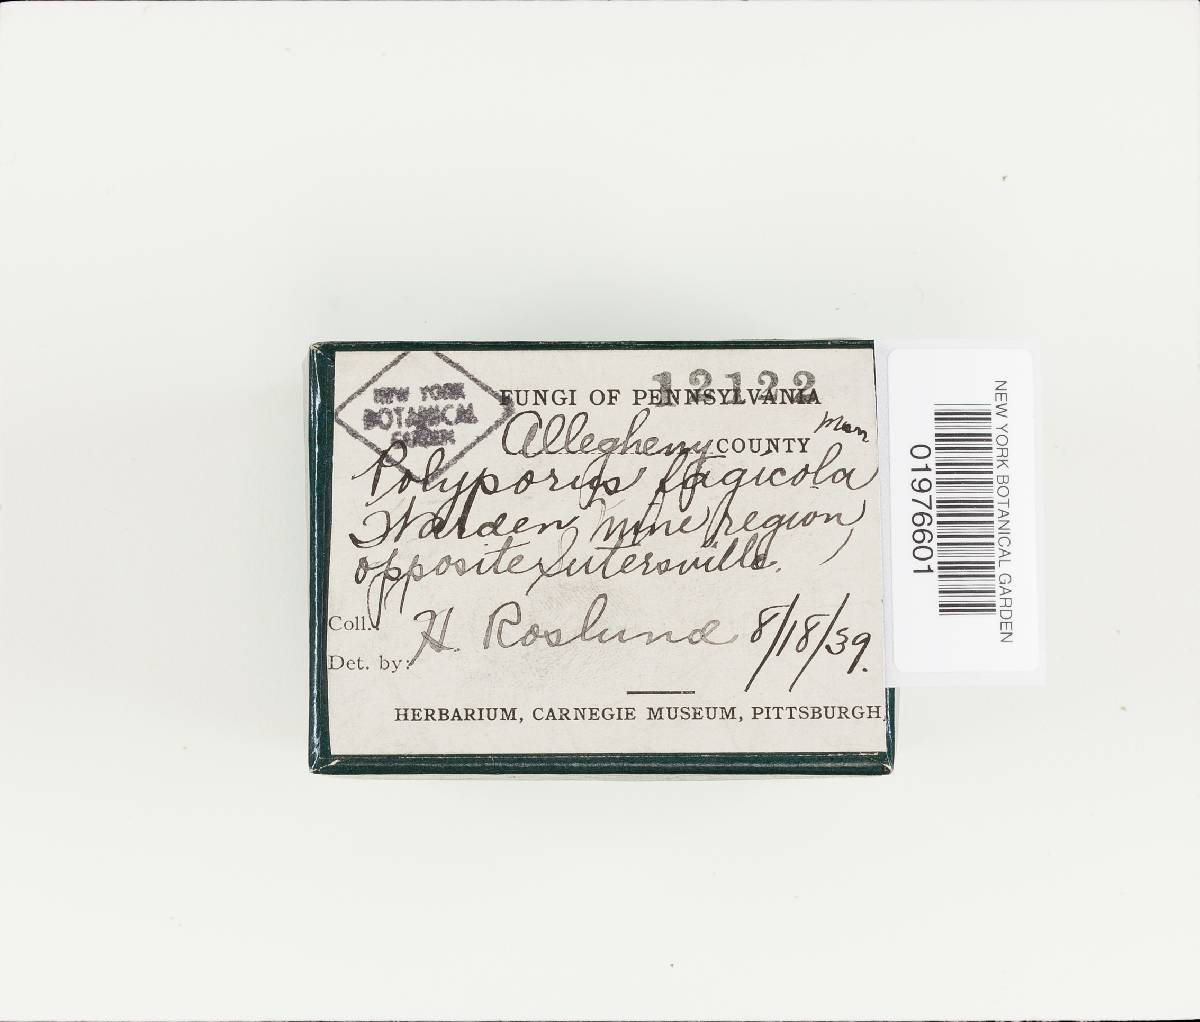 NEW YORK
BOTANICAL
GARDEN
12122
FUNGI OF PENNSYLVANIA
Allegheny COUNTY
Polyporus fagicola Murr
Warden Mine region,
opposite Sutersville.
Coll.: H. Roslund 8/18/39.
Det. by:
HERBARIUM, CARNEGIE MUSEUM, PITTSBURGH,
NEW YORK BOTANICAL GARDEN
01976601